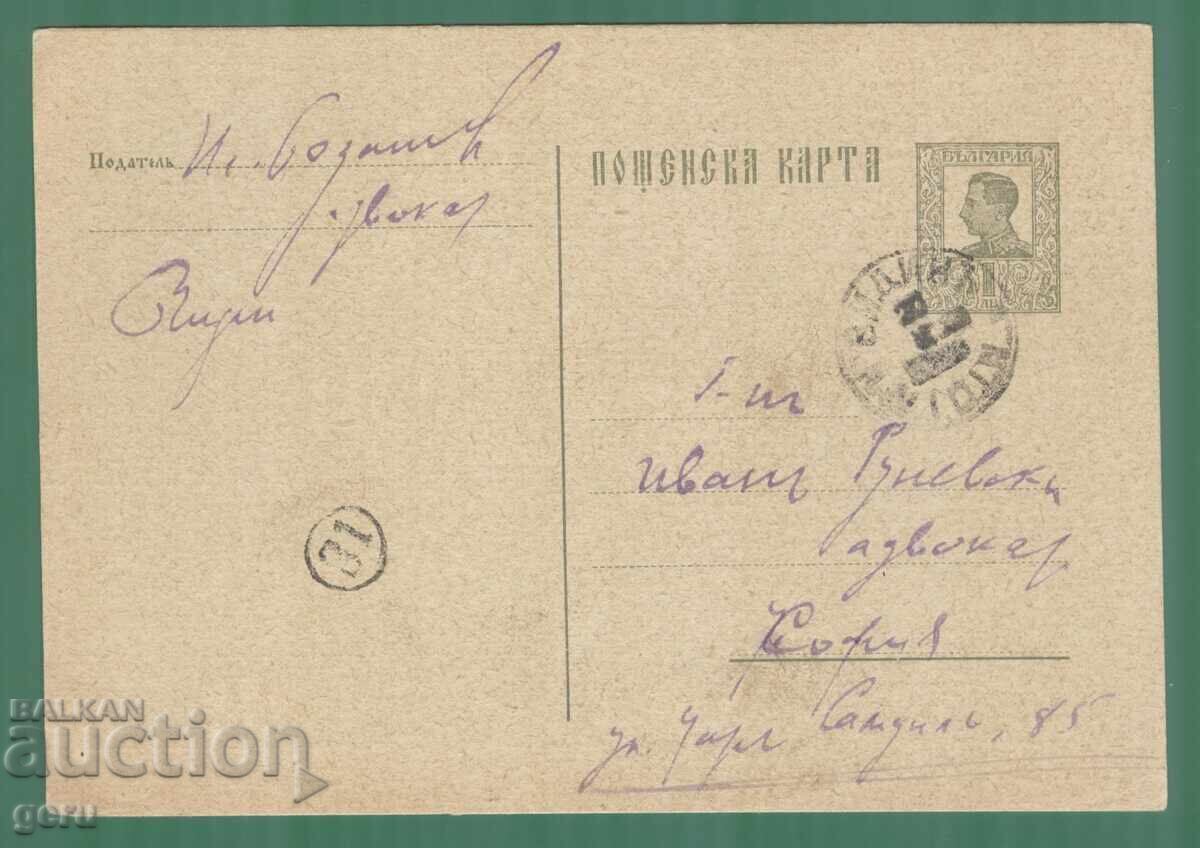 Податель
адвокатъ
ПОЩЕНСКА КАРТА
БЪЛГАРИЯ
1
ВИДИНЪ
Г-нъ
Иванъ Руневски
адвокат
София
ул. Царь Самуилъ, 85
31
BALKAN
auction
geru